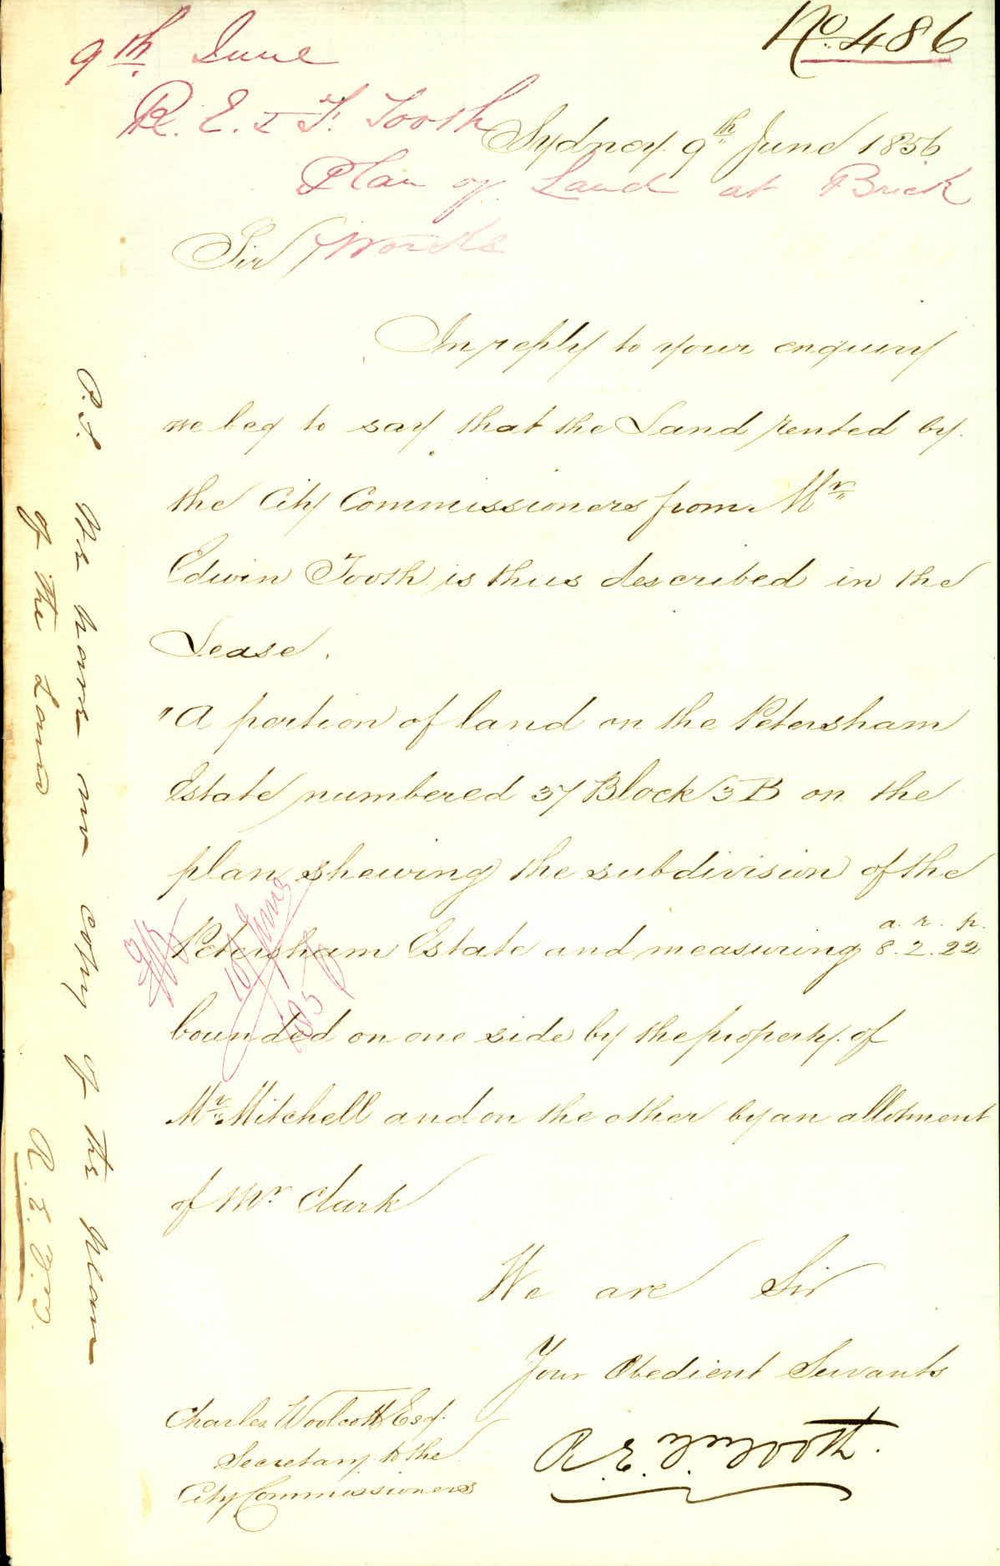 No. 486
9th June
R. E. & F. Tooth
Sydney 9th June 1856
Plan of Land at Brick
Works
Sir
In reply to your enquiry
we beg to say that the Land rented by
the City Commissioners from Mr
Edwin Tooth is thus described in the
Lease.
"A portion of land on the Petersham
Estate numbered 37 Block 3 B on the
plan shewing the subdivision of the
a. r. p.
Petersham Estate and measuring 8.2.22
bounded on one side by the property of
Mr Mitchell and on the other by an allotment
of Mr Clark
We are Sir
Your Obedient Servants
Charles Woolcott Esq.
Secretary to the
City Commissioners
P.S. We have no copy of the plan
of the Land
10 June
185